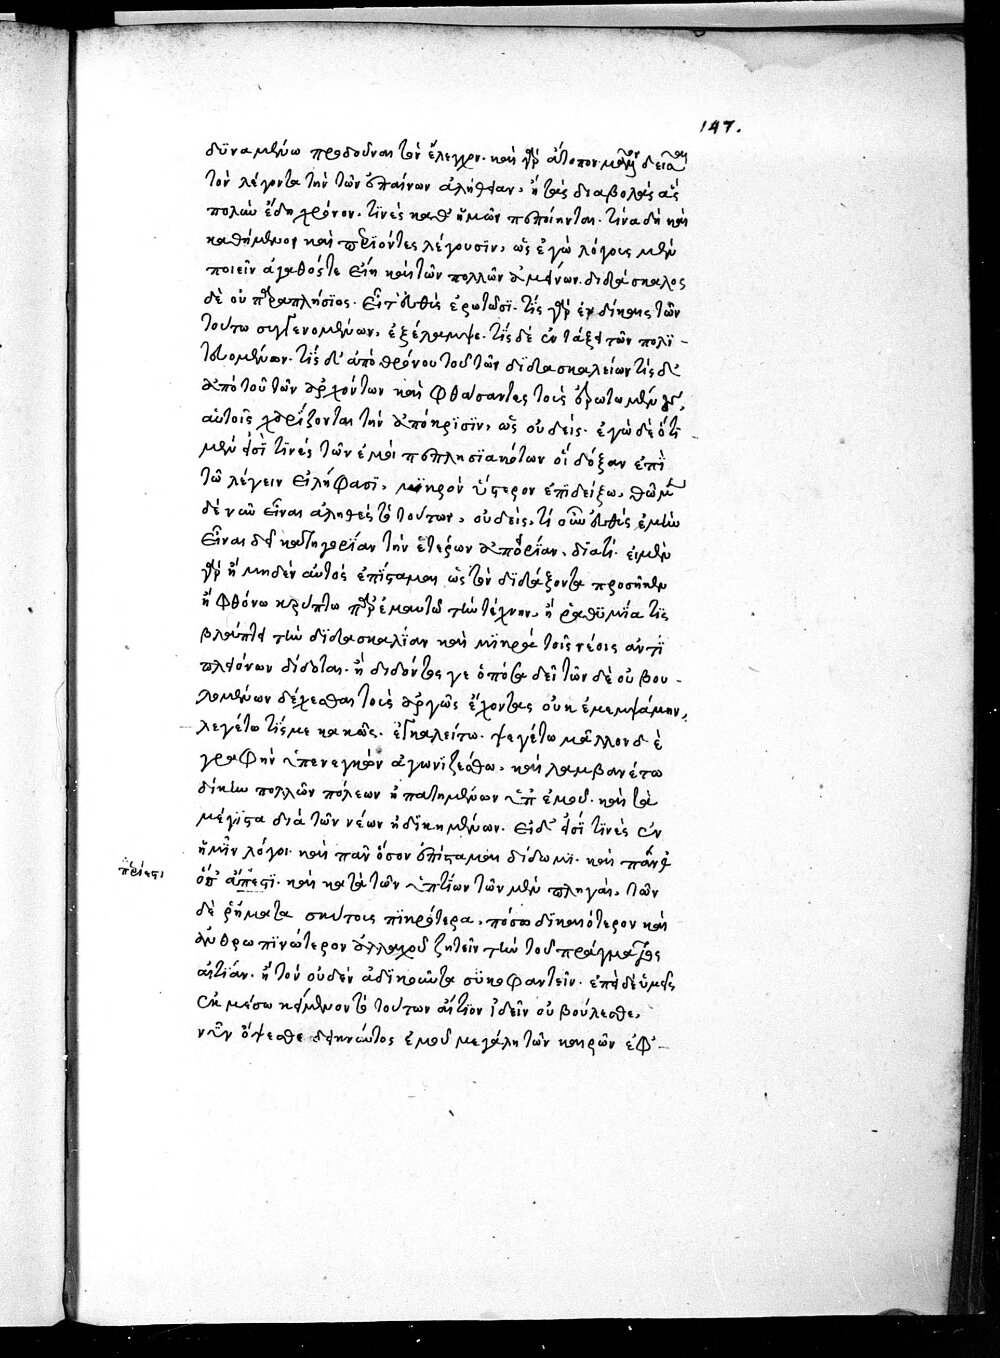 147.
δϋναμένω προδοῦναι τὸν ἔλεγχον. καὶ γὰρ ἄτοπον
τὸν λέγοντα τὴν τῶν ἐπαίνων ἀλήθειαν, ἢ τὰς διαβολὰς ἃς
πολὺν ἤδη χρόνον. τϊνὲς καθ' ἡμῶν πεποίηνται. τίνα δὴ καὶ
καθήμενοι καὶ περϊϊόντες λέγουσϊν, ὡς ἐγὼ λόγοις μὲν
ποιεῖν ἀγαθός τε εἴην καὶ τῶν πολλῶν ἀμείνων. διδάσκαλος
δὲ οὐ παραπλήσϊος. εἶτ' εὐθὺς ἐρωτῶσϊ. τίς γὰρ ἐν δίκαις τῶν
τούτω συγγενομένων, ἐξέλαμψε. τίς δὲ ἐν τάξει τῶν πολϊ-
τευομένων. τίς δ' ἀπὸ θρόνου τοῦ τῶν διδασκαλείων τίς δ'
ἀπὸ τοῦ τῶν ἀρχόντων καὶ φθάσαντες τοὺς ἐρωτωμένους,
αὐτοῖς χαρίζονται τὴν ἀπόκρϊσϊν, ὡς οὐδείς. ἐγὼ δὲ ὅτι
μὲν εἰσί τϊνες τῶν ἐμοὶ πεπλησϊακότων οἳ δόξαν ἐπὶ
τῶ λέγειν εἰλήφασϊ, μϊκρὸν ὕστερον ἐπϊδείξω, θῶμεν
δὲ νῦν εἶναι ἀληθὲς τὸ τούτων, οὐδείς, τί οὖν εὐθὺς ἐμὴν
εἶναι δεῖ κατηγορίαν τὴν ἑτέρων ἀπορίαν. διατί. εἰ μὲν
γὰρ ἢ μηδὲν αὐτὸς ἐπίσταμαι ὡς τὸν διδάξοντα προσῆκεν
ἢ φθόνω κρύπτω παρ' ἐμαυτῶ τὴν τέχνην, ἢ ῥαθϋμία τις
βλάπτει τὴν διδασκαλίαν καὶ μϊκρὰ τοῖς νέοις ἀντὶ
πλειόνων δίδοται. ἢ διδόντας γε ὁπόσα δεῖ τῶν δὲ οὐ βου-
λομένων δέχεσθαι τοὺς ἀργῶς ἔχοντας οὐκ ἐμεμψάμην,
λεγέτω τίς με κακῶς. ἐγκαλείτω. ψεγέτω μᾶλλον δὲ
γραφὴν ἀπενεγκὼν ἀγωνϊζέσθω. καὶ λαμβανέτω
δίκην πολλῶν πόλεων ἠπατημένων ὑπ' ἐμοῦ. καὶ τὰ
μέγϊστα διὰ τῶν νέων ἠδικημένων. εἰ δ' εἰσί τϊνες ἐν
ἡμῖν λόγοι. καὶ πᾶν ὅσον ἐπίσταμαι δίδωμϊ. καὶ πανταχῆ
ἄπεστϊ. καὶ κατὰ τῶν ὑπτίων τῶν μὲν πληγαὶ, τῶν
δὲ ῥήματα σκύτους πϊκρότερα, πόσω δϊκαιότερον καὶ
ἀνθρωπϊνώτερον ἀλλαχοῦ ζητεῖν τὴν τοῦ πράγματος
αἰτίαν. ἢ τὸν οὐδὲν ἀδϊκοῦντα σϋκοφαντεῖν. ἐπεὶ δὲ ὑμεῖς
ἐν μέσω κείμενον τὸ τούτων αἴτϊον ἰδεῖν οὐ βούλεσθε,
νῦν ὄψεσθε δεικνύντος ἐμοῦ μεγάλη τῶν καιρῶν ἐφ'-